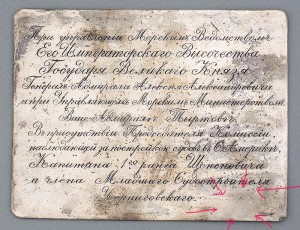 При управленіи Морскимъ Вѣдомствомъ
Его Императорскаго Высочества
Государя Великаго Князя
Генералъ-Адмирала Алексѣя Александровича
и при Управляющемъ Морскимъ Министерствомъ
Вице-Адмиралѣ Тыртовѣ,
Въ присутствіи Предсѣдателя Коммисіи
наблюдающей за постройкой судовъ въ С. Америкѣ
Капитана 1го ранга Щенсновича
и члена Младшаго Судостроителя
Черниговскаго.